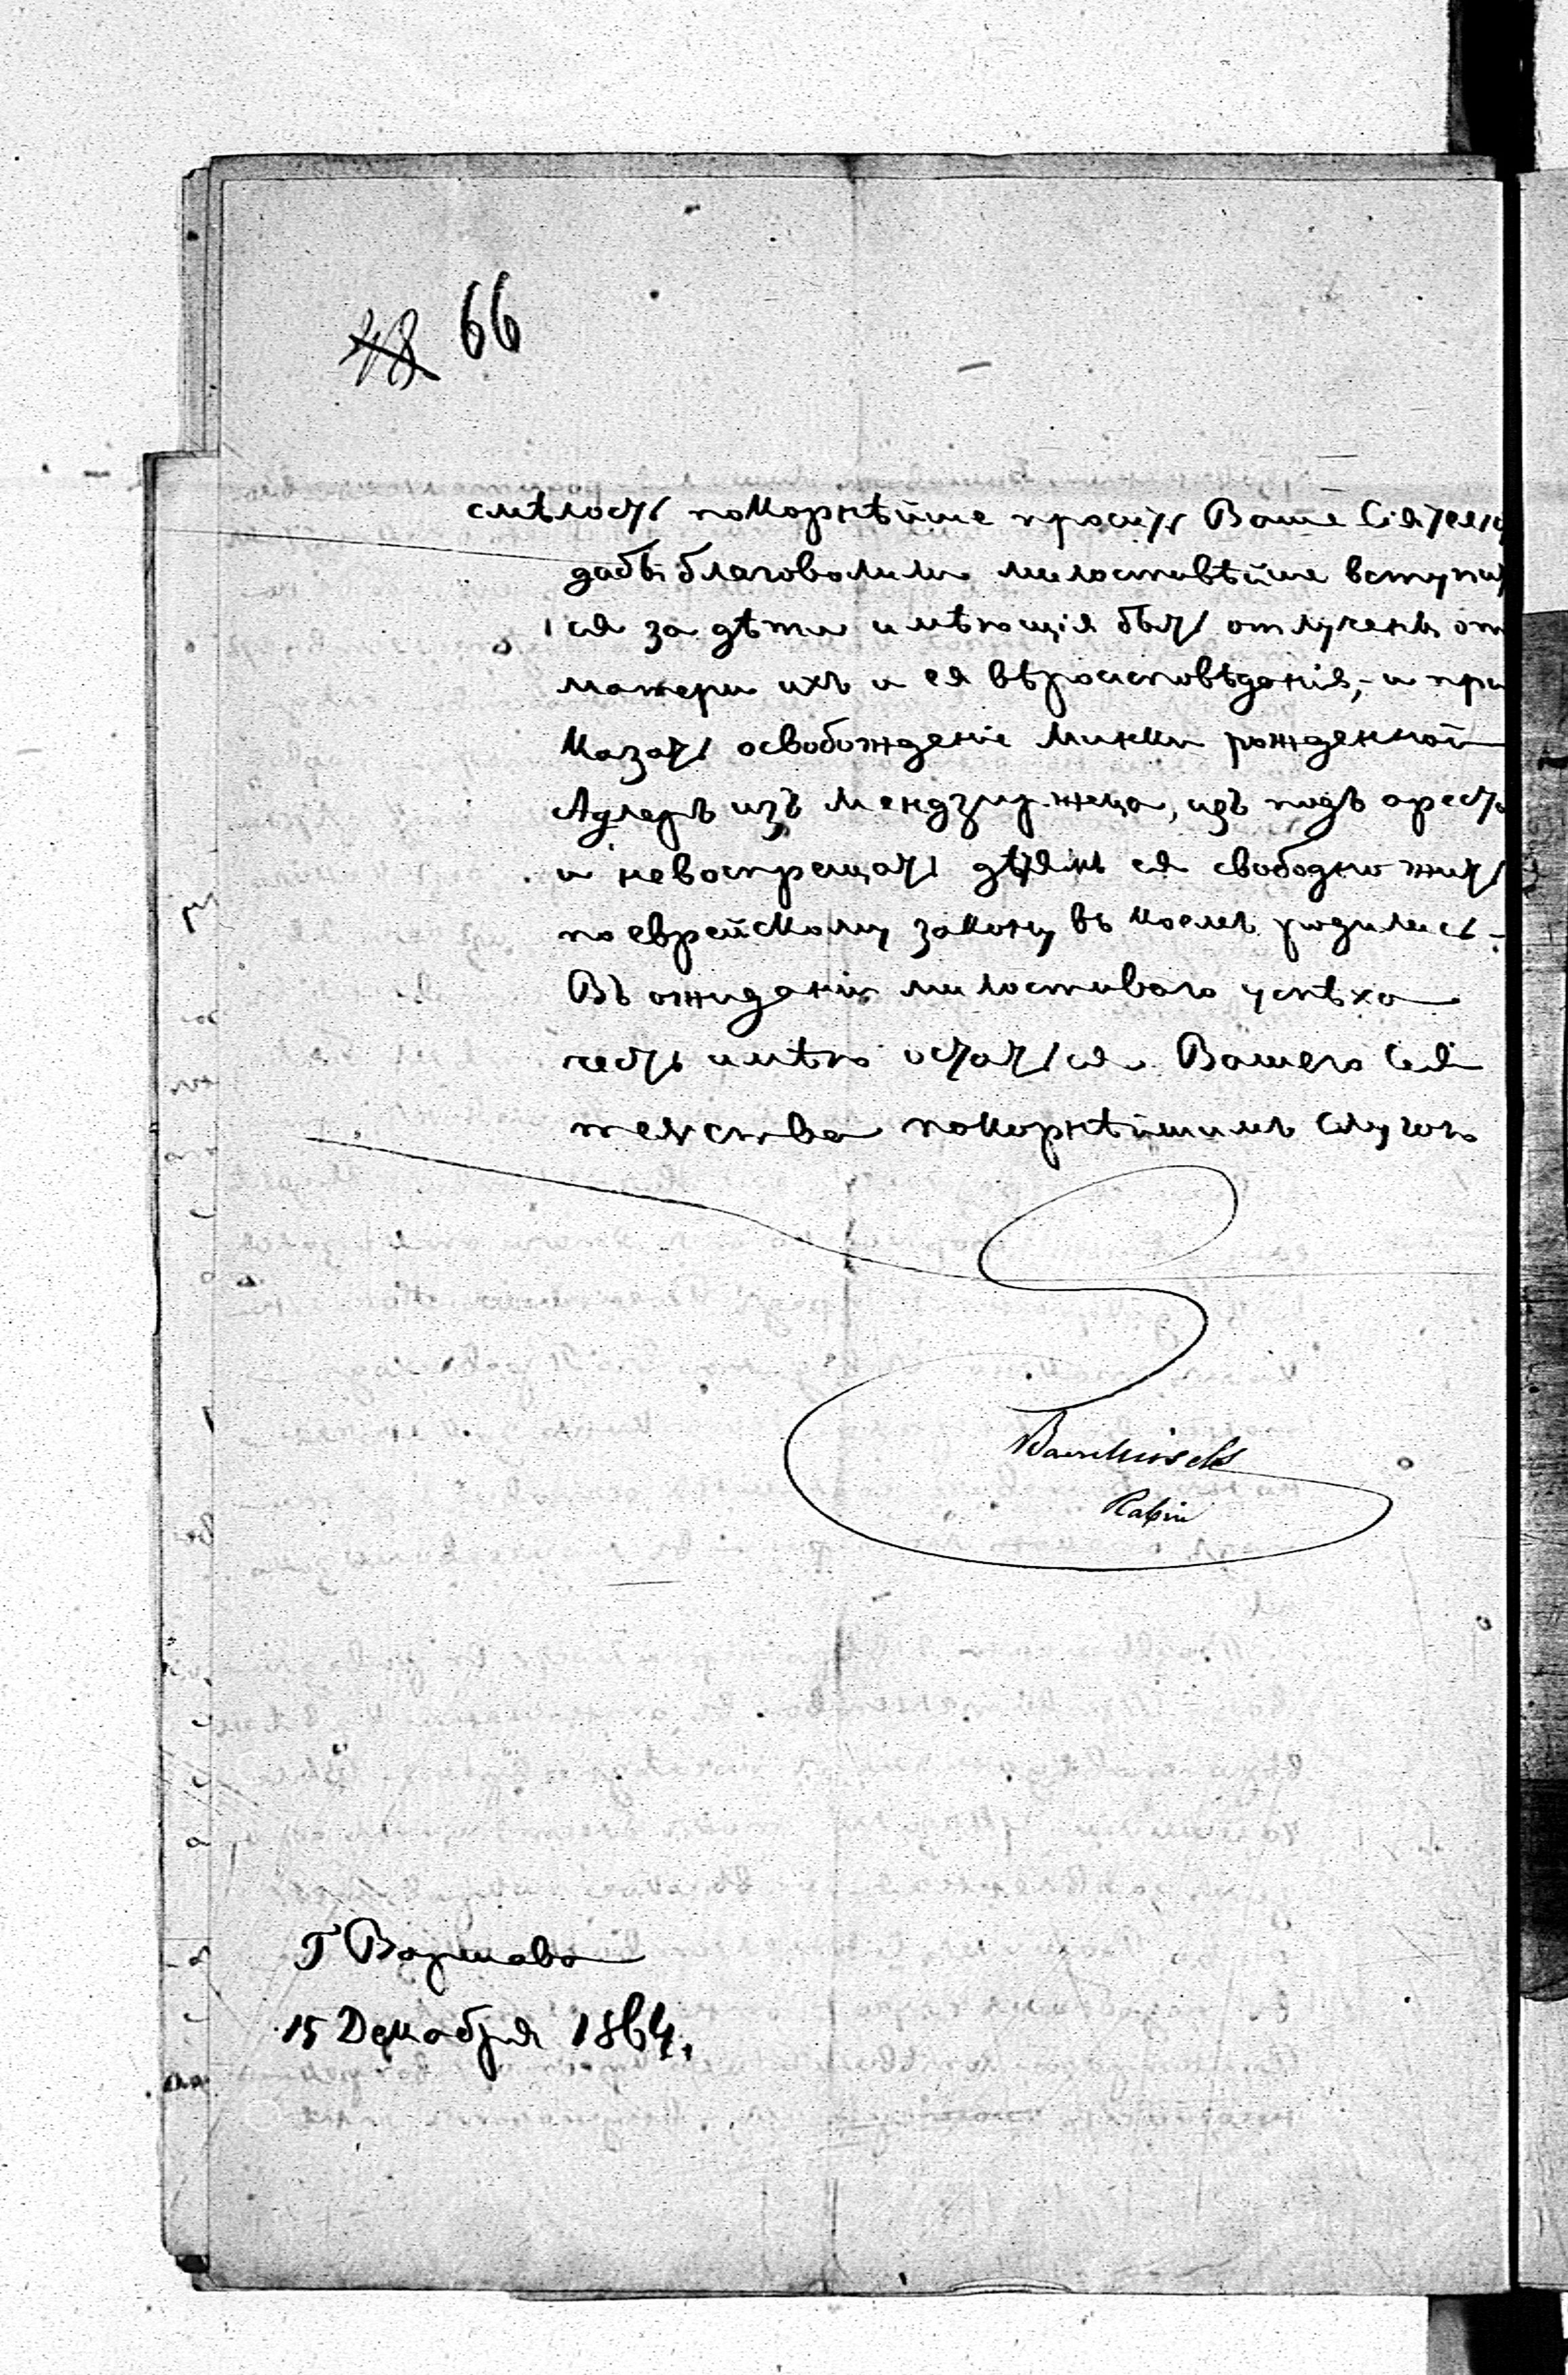 48 66
смѣлость покорнѣйше просить Ваше Сіятель
дабы благоволили милостивѣйше вступит
ся за дѣти имѣющія быть отлученъ от
матери ихъ и ея вѣроисповѣданія, и при
казать освобожденіе Минки рожденной
Адлеръ изъ Мендзыржеца, изъ подъ ареста
и невоспрещать дѣтямъ ея свободно жить
по еврейскому закону въ коемъ родились.
Въ ожиданіи милостиваго успѣха
честь имѣю остаться Вашего Сія
тельства покорнѣйшимъ слугою
Rabin
Г Варшава
15 Декабря 1864.